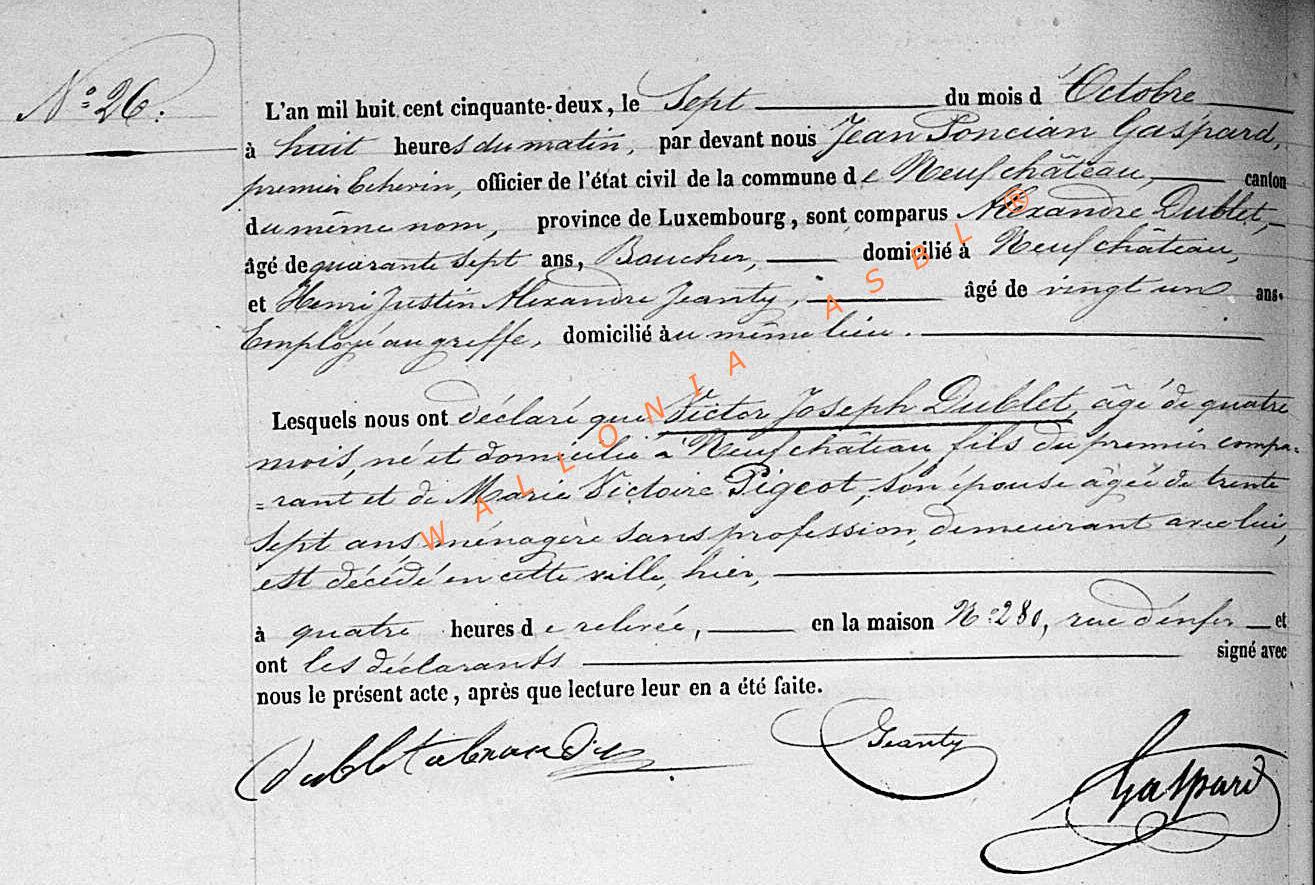 N.º 26.
L'an mil huit cent cinquante-deux, le Sept du mois d'Octobre
à huit heures du matin, par devant nous Jean Poncian Gaspard,
premier Echevin, officier de l'état civil de la commune de Neufchâteau, canton
du même nom, province de Luxembourg, sont comparus Alexandre Dublet,
âgé de quarante sept ans, Boucher, domicilié à Neufchâteau,
et Henri Justin Alexandre Jeanty, âgé de vingt un ans.
Employé au greffe, domicilié au même lieu.
Lesquels nous ont déclaré que Victor Joseph Dublet, âgé de quatre
mois, né et domicilié à Neufchâteau fils du premier compa-
=rant et de Marie Victoire Pigeot, son épouse âgée de trente
sept ans, ménagère sans profession, demeurant avec lui,
est décédé en cette ville, hier,
à quatre heures de relevée, en la maison N.º 280, rue d'enfer et
ont les déclarants signé avec
nous le présent acte, après que lecture leur en a été faite.
Dublet alexandre Jeanty Gaspard
WALLONIA ASBL ®